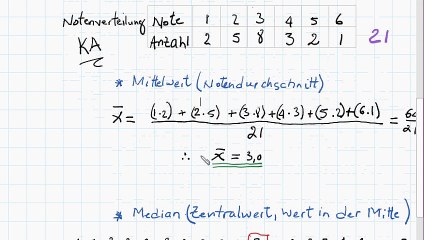 Notenverteilung Note 1 2 3 4 5 6
KA Anzahl 2 5 8 3 2 1 21
* Mittelwert (Notendurchschnitt)
x̄ = (1·2) + (2·5) + (3·8) + (4·3) + (5·2) + (6·1) / 21 =
∴ x̄ = 3,0
* Median (Zentralwert, Wert in der Mitte)